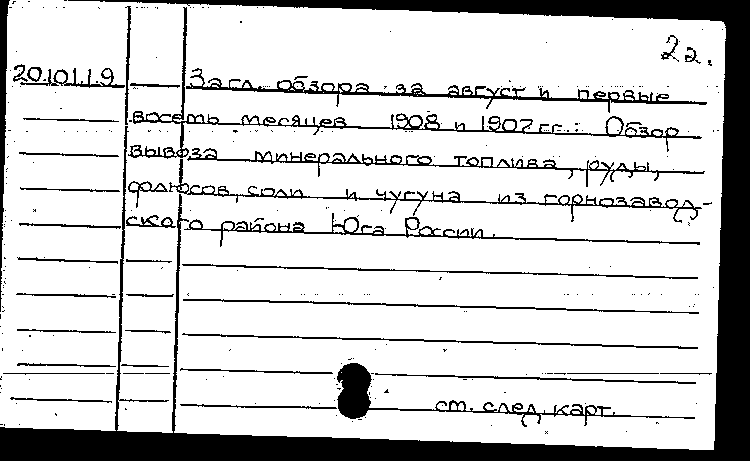 2а.
20.101.1.9 Загл. обзора за август и первые
восемь месяцев 1908 и 1907 гг.: Обзор
вывоза минерального топлива, руды,
флюсов, соли и чугуна из горнозавод-
ского района Юга России.
см. след. карт.